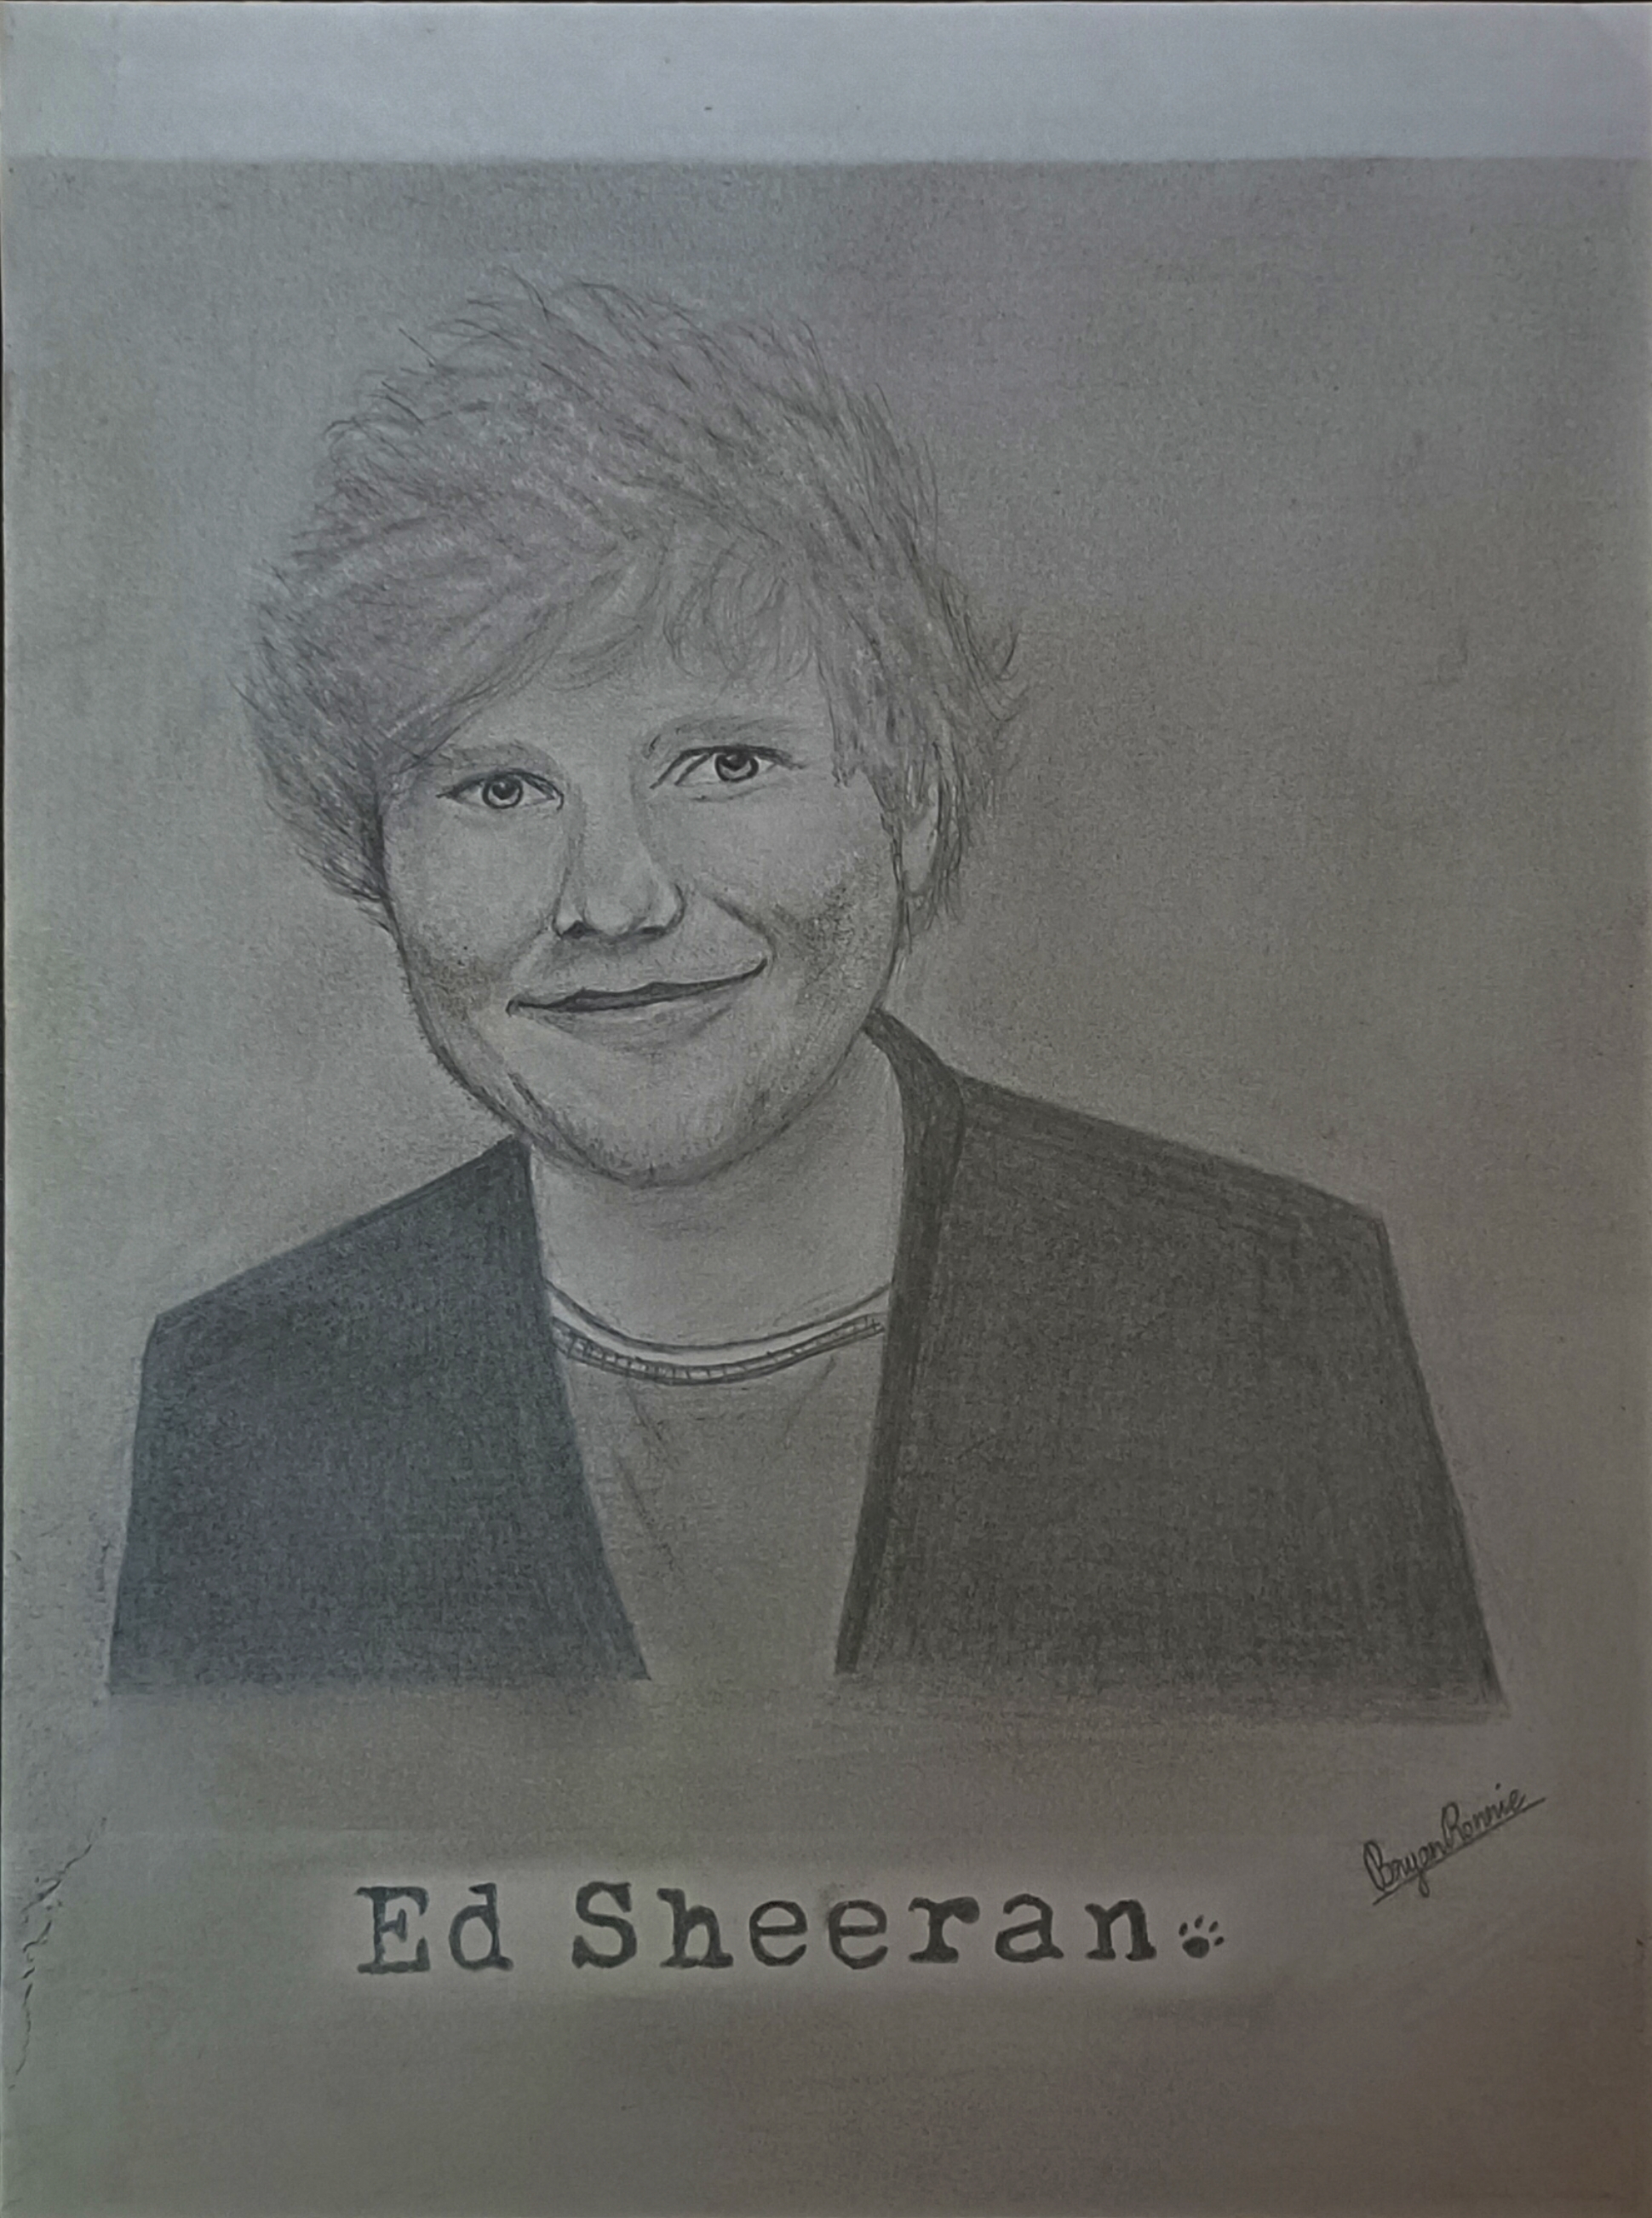 Bryan Ronnie
Ed Sheeran